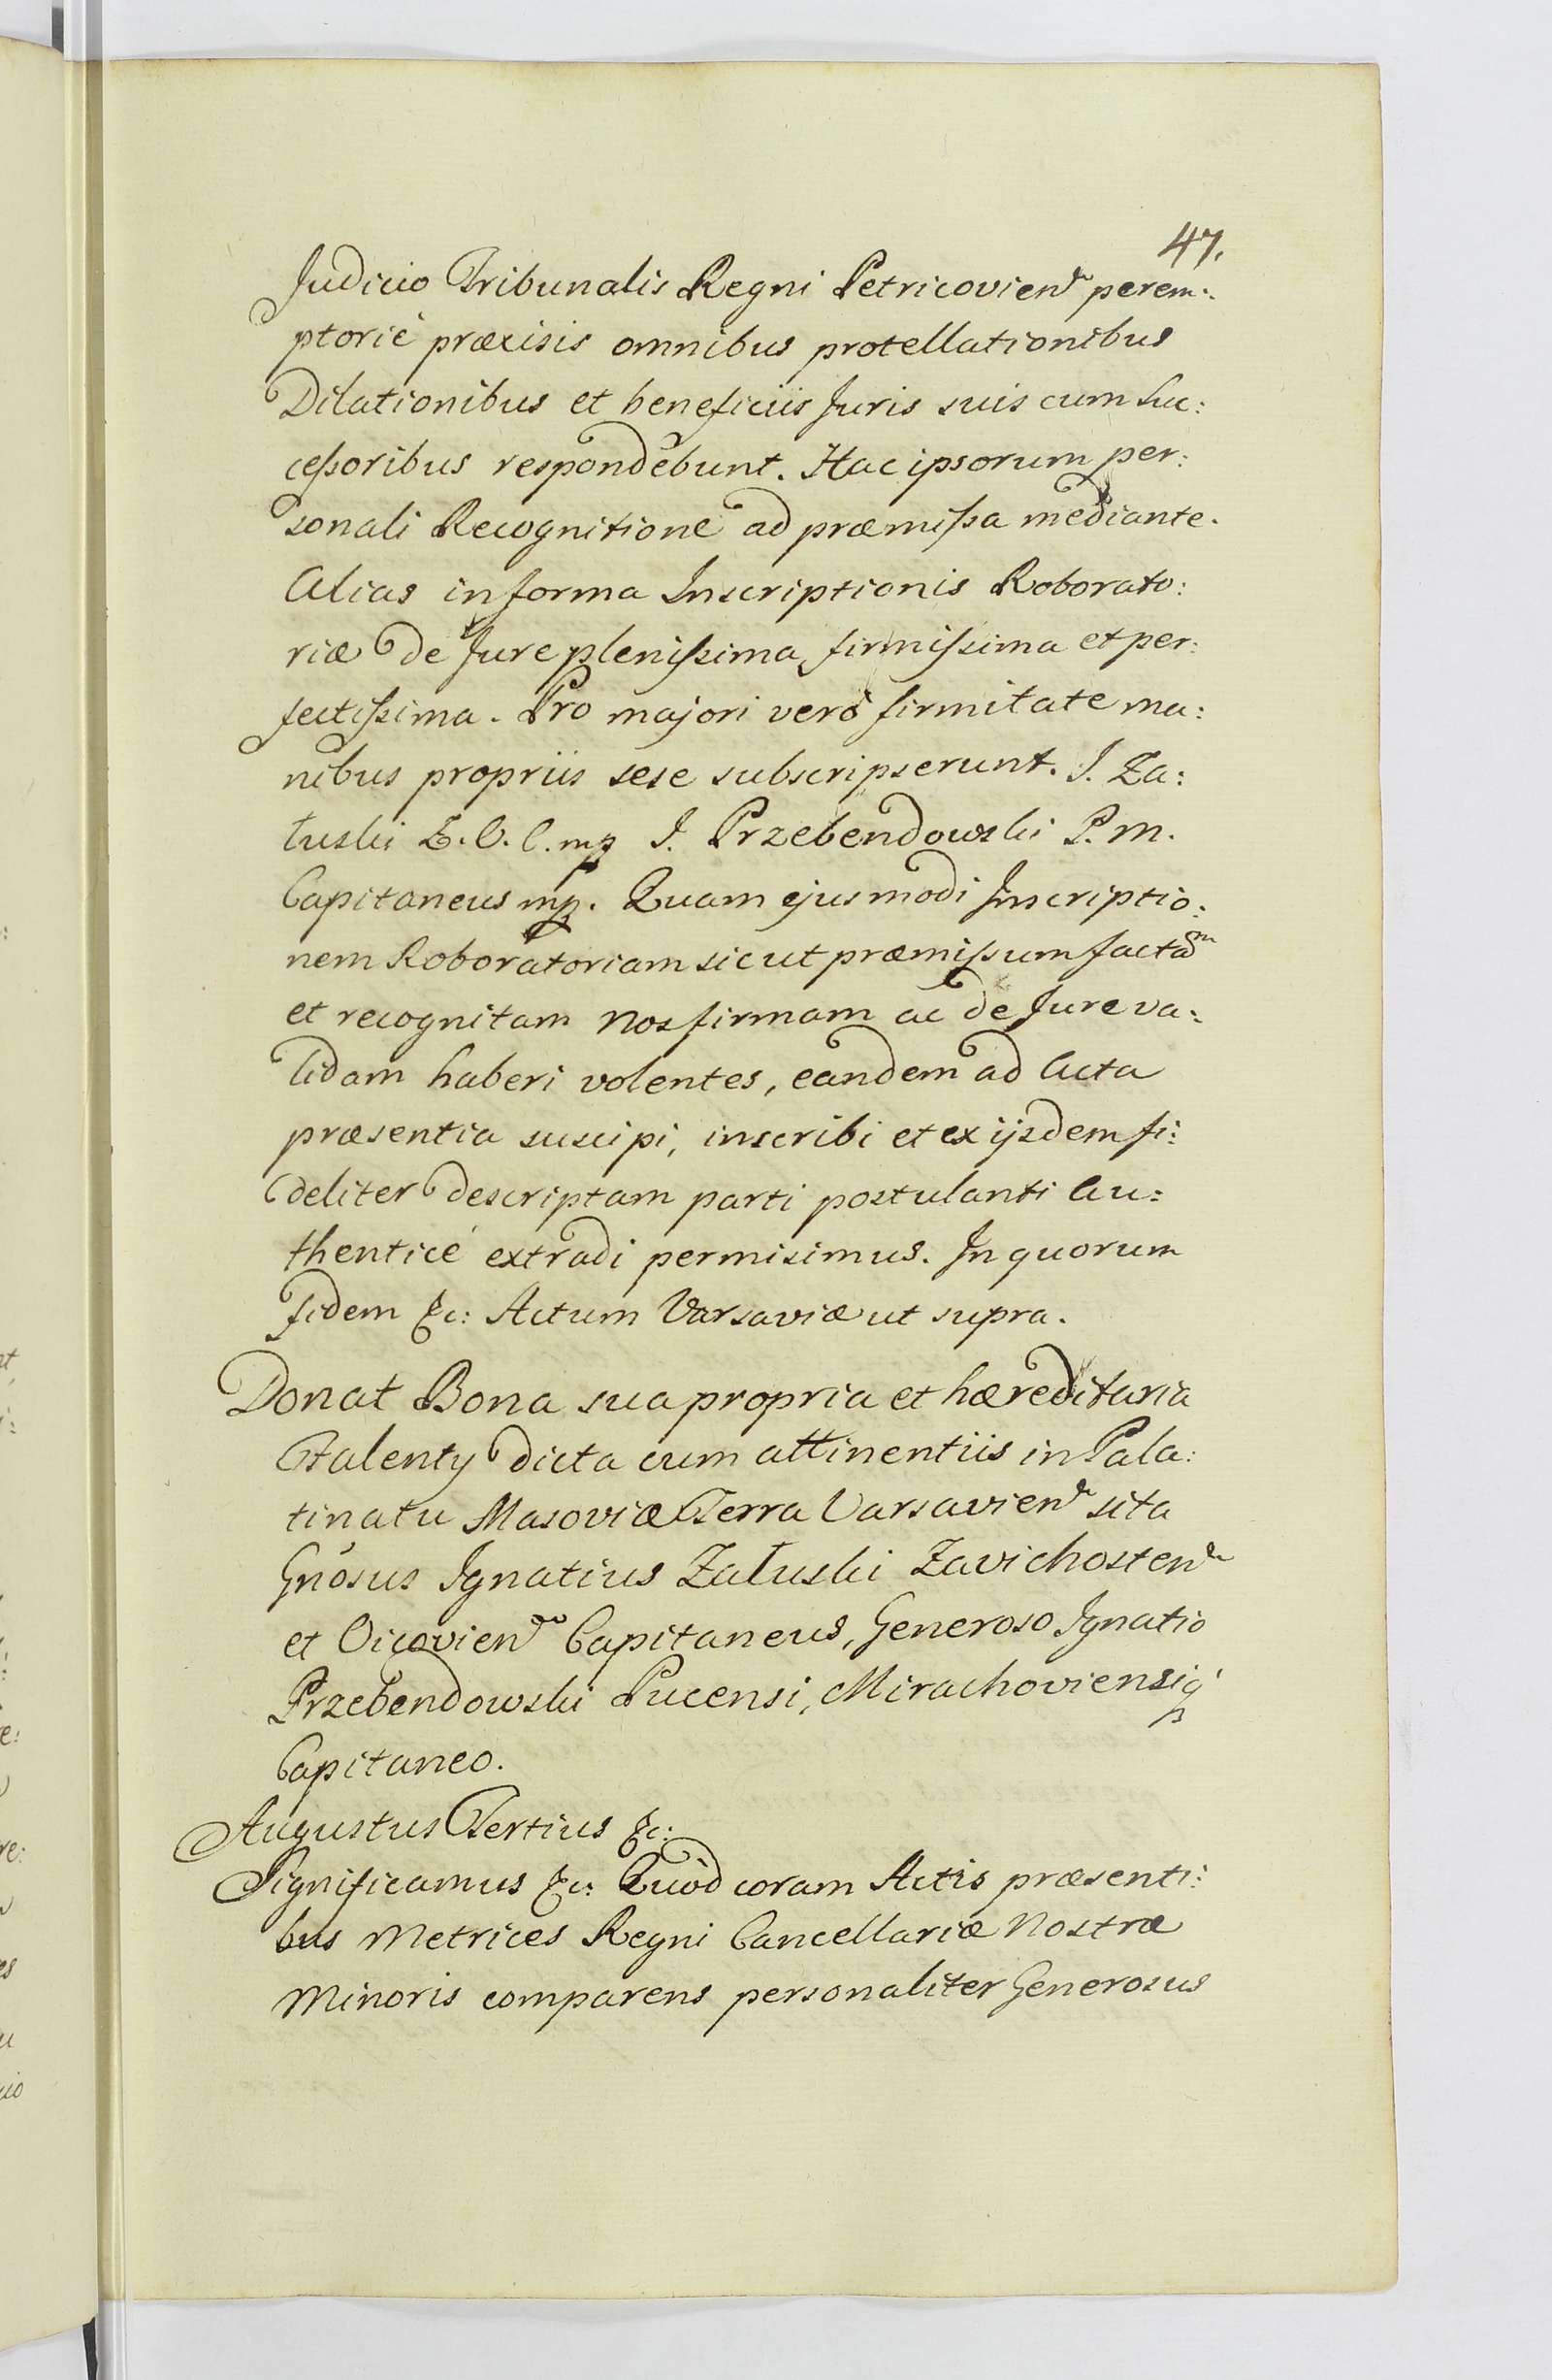 47.
Judicio Tribunalis Regni Petricovien perem:
ptorié præcisis omnibus protellationibus
Dilationibus et beneficiis Juris suis cum Suc:
ceßoribus respondebunt. Hac ipsorum per:
sonali Recognitione ad præmißa mediante.
Alias in forma Inscriptionis Roborato:
riæ de Jure plenißima, firmißima et per:
fectißima. Pro majori veró firmitate ma:
nibus propriis sese subscripserunt. J. Za:
łuski Z. O. C. mp J. Przebendowski P. M.
Capitaneus mp. Quam ejusmodi Inscriptio:
nem Roboratoriam sicut præmißum factam
et recognitam nos firmam ac de Jure va:
lidam haberi volentes, eandem ad Acta
præsentia suscipi, inscribi et ex ijsdem fi:
deliter descriptam parti postulanti Au:
thenticé extradi permisimus. In quorum
fidem &c: Actum Varsaviæ ut supra.
Donat Bona sua propria et hæreditaria
Falenty dicta cum attinentiis in Pala:
tinatu Masoviæ Terra Varsavien sita
Gnósus Ignatius Załuski Zavichosten
et Oicovien Capitaneus, Generoso Ignatio
Przebendowski Pucensi, Mirachoviensiq
Capitaneo.
Augustus Tertius &c:
Significamus &c: Quód coram Actis præsenti:
bus Metrices Regni Cancellariæ Nostræ
Minoris comparens personaliter Generosus